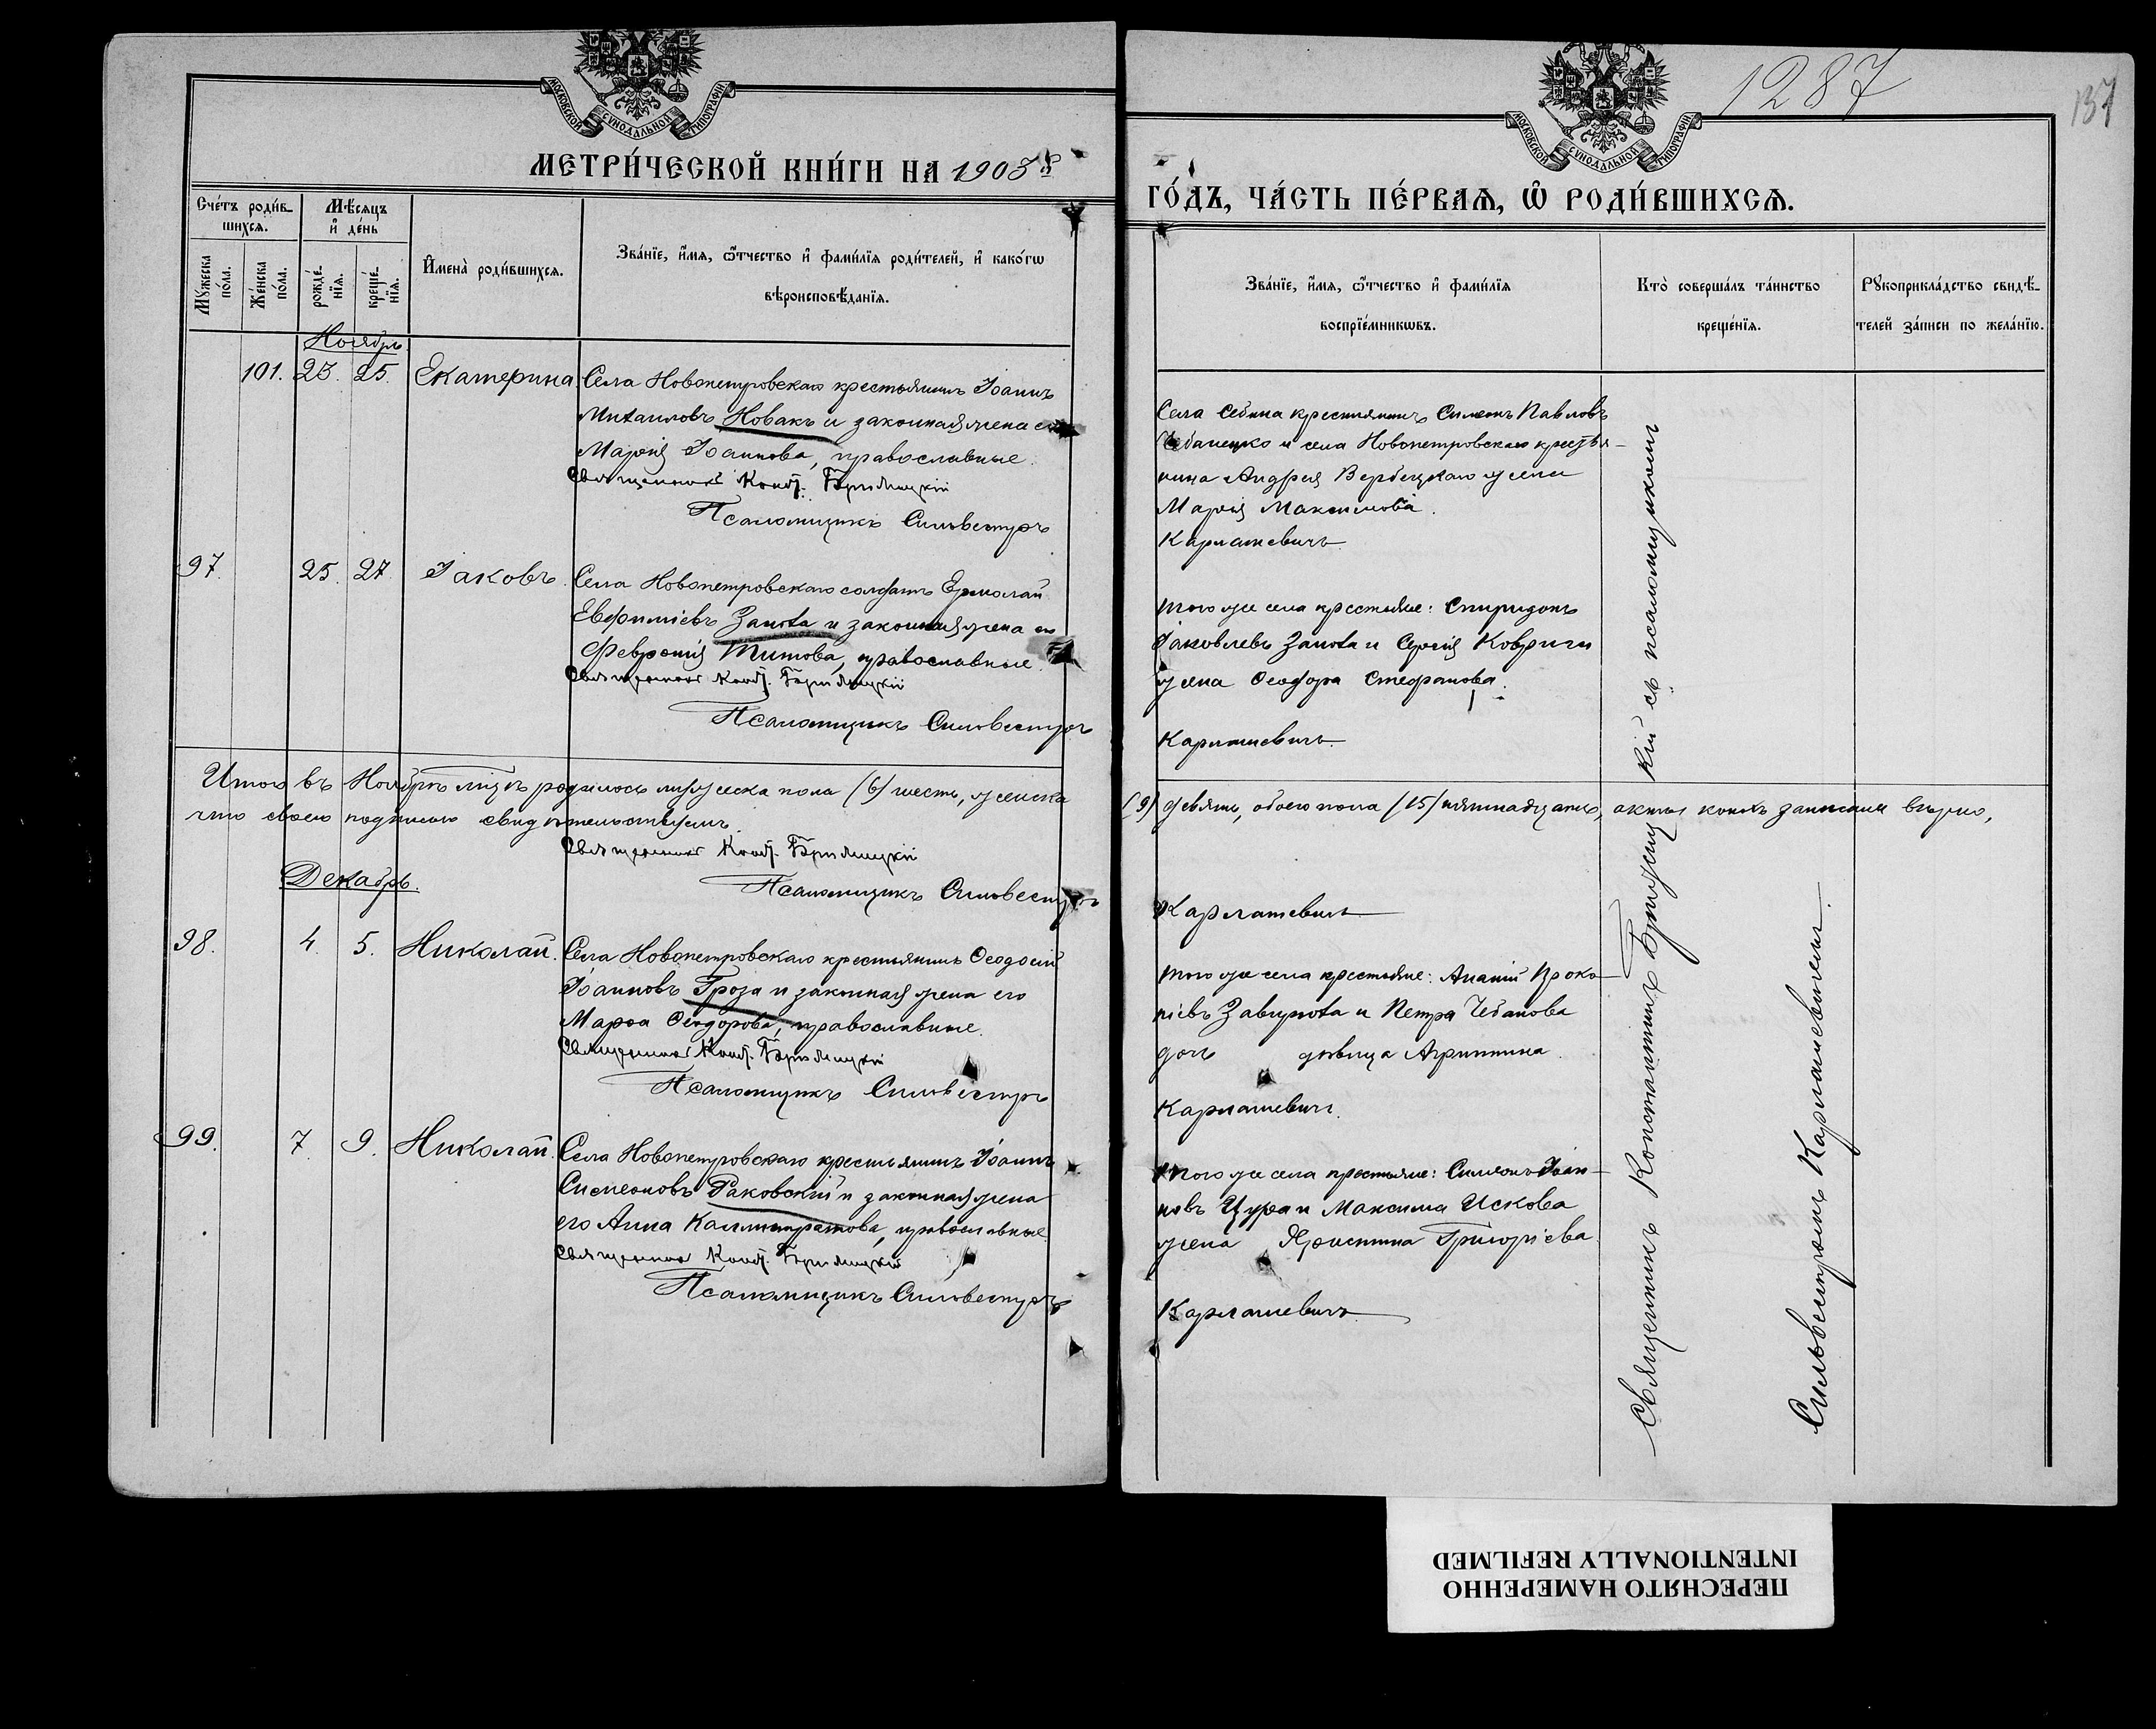 1287
137
МОСКОВСКОЙ СѴНОДАЛЬНОЙ ТИПОГРАФІИ
МОСКОВСКОЙ СѴНОДАЛЬНОЙ ТИПОГРАФІИ
МЕТРИ́ЧЕСКОЙ КНИ́ГИ НА 1903й
ГО́ДЪ, ЧА́СТЬ ПЕ́РВАѦ, Ѡ҆ РОДИ́ВШИХСѦ.
Сче́тъ роди́в-
шихсѧ.
Мѣ́сѧцъ
и҆ де́нь
Мꙋ́жеска
по́ла.
Же́нска
по́ла.
рожде́-
нїѧ.
креще́-
нїѧ.
И҆мена̀ роди́вшихсѧ.
Зва́нїе, и҆́мѧ, ѻ҆́тчество и҆ фами́лїѧ роди́телей, и҆ како́гѡ
вѣроисповѣ́данїѧ.
Зва́нїе, и҆́мѧ, ѻ҆́тчество и҆ фами́лїѧ
воспрїе́мникѡвъ.
Кто̀ соверша́лъ та́инство
креще́нїѧ.
Рꙋкоприкла́дство свидѣ́-
телей за́писи по жела́нїю.
Ноябрь
101. 23. 25. Екатерина. Села Новопетровскаго крестьянинъ Іоаннъ
Михаиловъ Новакъ и законная жена его
Марія Іоаннова, православные.
Священникъ Конст. Бржицкій
Псаломщикъ Сильвестръ
Села Себина крестьянинъ Симеонъ Павловъ
Чебаненко и села Новопетровскаго крестья-
нина Андрея Вербецкаго жена
Марія Максимова.
Карпашевичъ
97. 25. 27. Іаковъ. Села Новопетровскаго солдатъ Ермолай
Евфиміевъ Замота и законная жена его
Февронія Титова, православные.
Священникъ Конст. Бржицкій
Псаломщикъ Сильвестръ
того же села крестьяне: Спиридонъ
Іаковлевъ Замота и Сергія Ковриги
жена Ѳеодора Стефанова.
Карпашевичъ
Итого въ Ноябрѣ м-цѣ родилось мужеска пола (6) шесть, женска (9) девять, обоего пола (15) пятнадцать, актъ коихъ записанъ вѣрно,
что своею подписью свидѣтельствуемъ.
Священникъ Конст. Бржицкій
Псаломщикъ Сильвестръ
Карпашевичъ
Декабрь.
98. 4. 5. Николай. Села Новопетровскаго крестьянинъ Ѳеодосій
Іоанновъ Гроза и законная жена его
Марѳа Ѳеодорова, православные.
Священникъ Конст. Бржицкій
Псаломщикъ Сильвестръ
того же села крестьяне: Ананій Проко-
піевъ Завирюха и Петра Чебанова
дочь девица Агриппина.
Карпашевичъ.
99. 7. 9. Николай. Села Новопетровскаго крестьянинъ Іоаннъ
Симеоновъ Раковскій и законная жена
его Анна Каллистратова, православные.
Священникъ Конст. Бржицкій
Псаломщикъ Сильвестръ
того же села крестьяне: Симеонъ Іоан-
новъ Цура и Максима Искова
жена Христина Григоріева.
Карпашевичъ.
Священникъ Константинъ кій съ псаломщикомъ
Сильвестромъ Карпашевичемъ.
ПЕРЕСНЯТО НАМЕРЕННО
INTENTIONALLY REFILMED